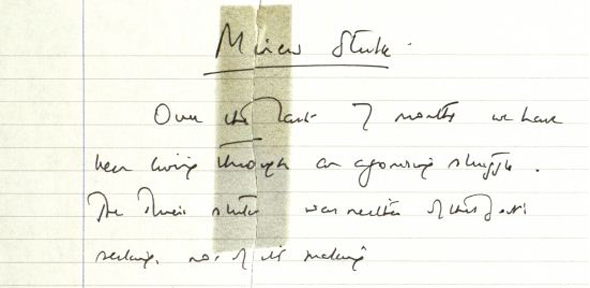 Miners Strike.
Over the last 7 months we have
been living through an agonising struggle.
The Miners strike was neither of this Govt's
seeking, nor of its making